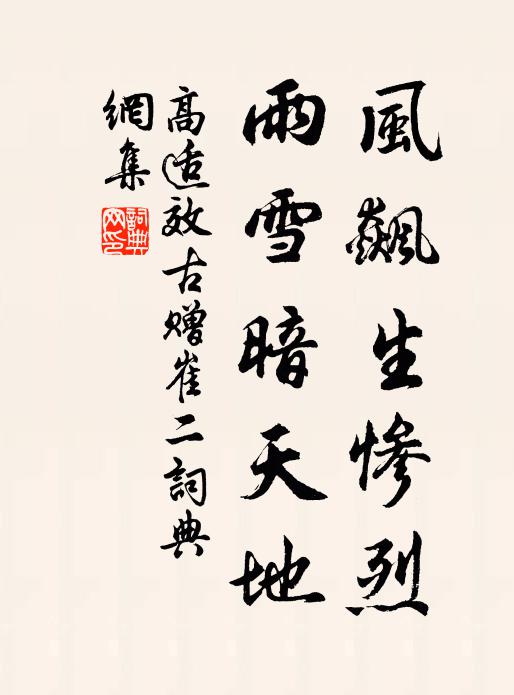 風飆生慘烈
雨雪暗天地
高适效古贈崔二詞典
網集
詞典
网印